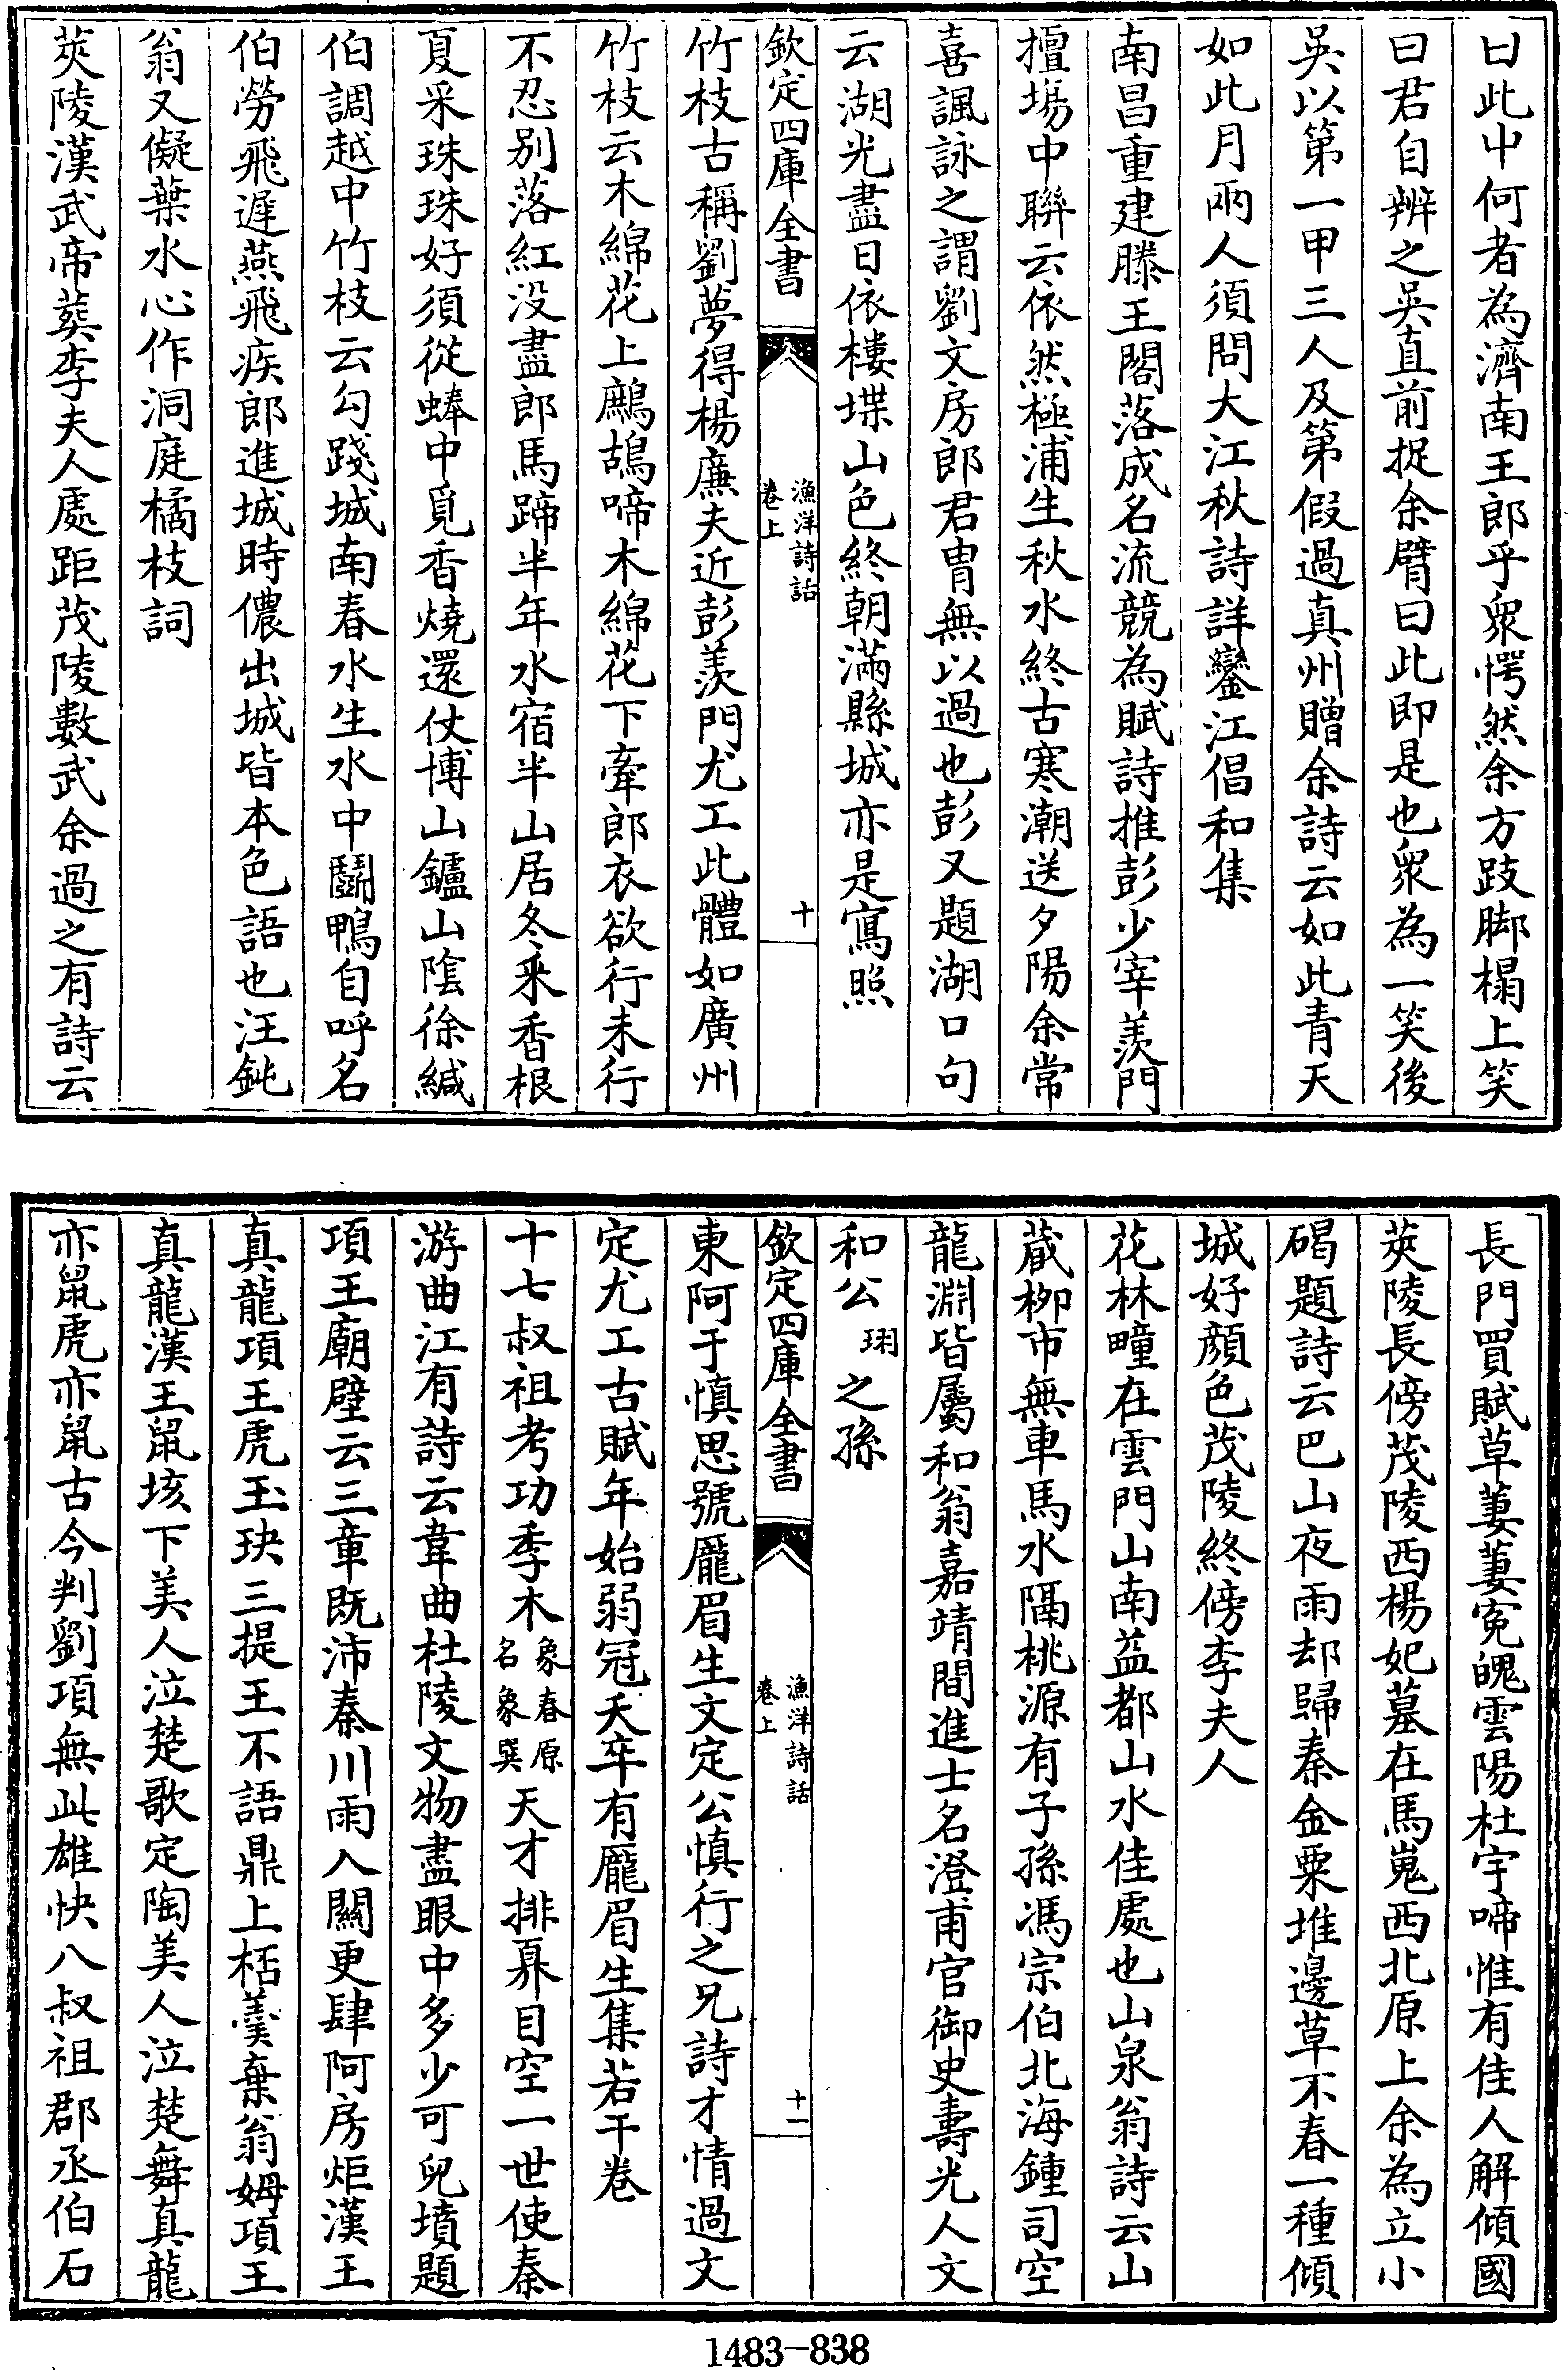 曰此中何者為濟南王郎乎衆愕然余方跂脚榻上笑
曰君自辨之吳直前捉余臂曰此即是也衆為一笑後
吳以第一甲三人及第假過真州贈余詩云如此青天
如此月兩人須問大江秋詩詳鑾江倡和集
南昌重建滕王閣落成名流競為賦詩推彭少宰羨門
擅場中聯云依然極浦生秋水終古寒潮送夕陽余常
喜諷詠之謂劉文房郎君胄無以過也彭又題湖口句
云湖光盡日依樓堞山色終朝滿縣城亦是寫照
欽定四庫全書
漁洋詩話
卷上
十
竹枝古稱劉夢得楊廉夫近彭羨門尤工此體如廣州
竹枝云木綿花上鷓鴣啼木綿花下牽郎衣欲行未行
不忍别落紅没盡郎馬蹄半年水宿半山居冬采香根
夏采珠珠好須從蜯中覓香燒還仗博山鑪山陰徐緘
伯調越中竹枝云勾踐城南春水生水中鬬鴨自呼名
伯勞飛遲燕飛疾郎進城時儂出城皆本色語也汪鈍
翁又儗葉水心作洞庭橘枝詞
茰陵漢武帝葬李夫人處距茂陵數武余過之有詩云
長門買賦草萋萋寃魄雲陽杜宇啼惟有佳人解傾國
茰陵長傍茂陵西楊妃墓在馬嵬西北原上余為立小
碣題詩云巴山夜雨却歸秦金粟堆邊草不春一種傾
城好顔色茂陵終傍李夫人
花林疃在雲門山南益都山水佳處也山泉翁詩云山
蔵柳市無車馬水隔桃源有子孫馮宗伯北海鍾司空
龍淵皆屬和翁嘉靖間進士名澄甫官御史壽光人文
和公珝之孫
欽定四庫全書
漁洋詩話
卷上
十一
東阿于慎思號龎眉生文定公慎行之兄詩才情過文
定尤工古賦年始弱冠夭卒有龎眉生集若干卷
十七叔祖考功季木象春原名象巽天才排奡目空一世使秦
游曲江有詩云韋曲杜陵文物盡眼中多少可兒墳題
項王廟壁云三章既沛秦川雨入關更肆阿房炬漢王
真龍項王虎玉玦三提王不語鼎上桮羮棄翁姆項王
真龍漢王䑕垓下美人泣楚歌定陶美人泣楚舞真龍
亦䑕虎亦䑕古今判劉項無此雄快八叔祖郡丞伯石
1483-838